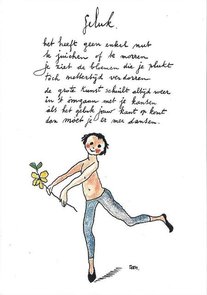 geluk.
het heeft geen enkel nut
te juichen of te morren
je ziet de bloemen die je plukt
toch mettertijd verdorren
de grote kunst schuilt altijd weer
in 't omgaan met je kansen
als het geluk jouw kant op komt
dan moet je er mee dansen.